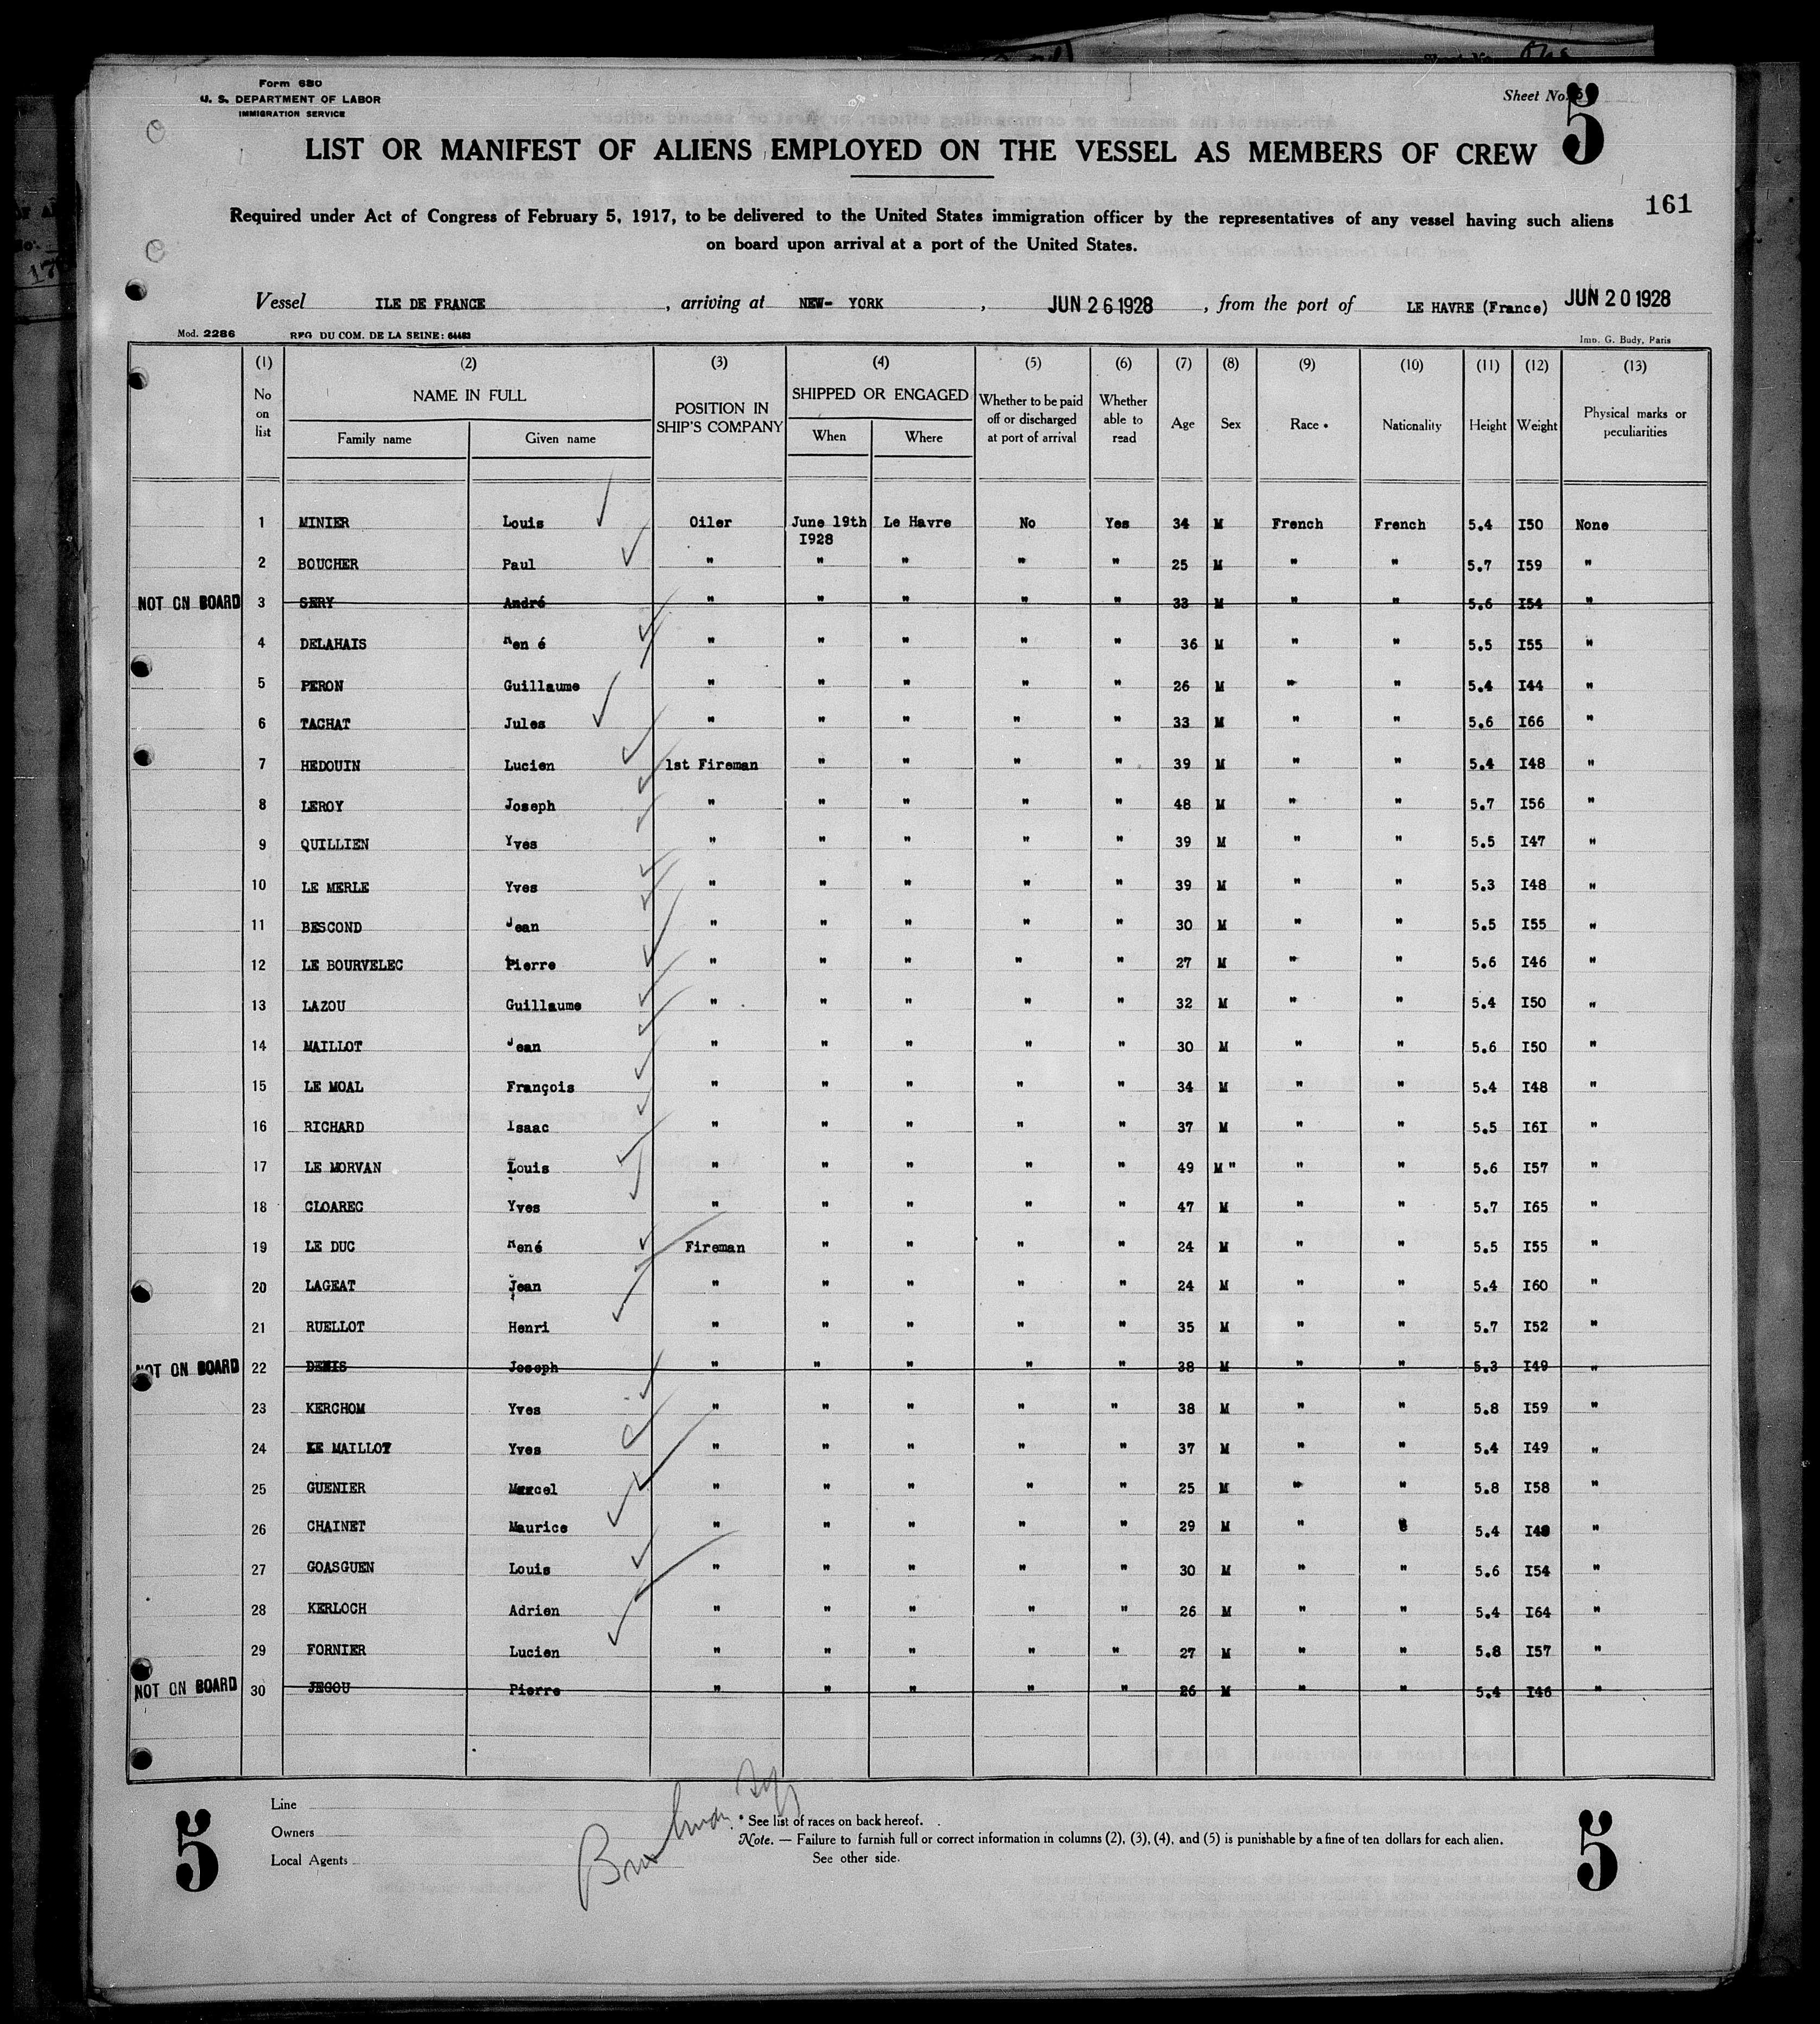 Form 680
U. S. DEPARTMENT OF LABOR
IMMIGRATION SERVICE
Sheet No. 5
5
LIST OR MANIFEST OF ALIENS EMPLOYED ON THE VESSEL AS MEMBERS OF CREW
161
Required under Act of Congress of February 5, 1917, to be delivered to the United States immigration officer by the representatives of any vessel having such aliens
on board upon arrival at a port of the United States.
Vessel ILE DE FRANCE , arriving at NEW- YORK , JUN 26 1928 , from the port of LE HAVRE (France) JUN 20 1928
Mod. 2286 REG DU COM. DE LA SEINE: 64483 Imp. G. Budy, Paris
(1) (2) (3) (4) (5) (6) (7) (8) (9) (10) (11) (12) (13)
No on list NAME IN FULL Family name Given name POSITION IN SHIP'S COMPANY SHIPPED OR ENGAGED When Where Whether to be paid off or discharged at port of arrival Whether able to read Age Sex Race • Nationality Height Weight Physical marks or peculiarities
1 MINIER Louis Oiler June 19th I928 Le Havre No Yes 34 M French French 5.4 I50 None
2 BOUCHER Paul " " " " " 25 M " " 5.7 I59 "
NOT ON BOARD 3 SERY André " " " " " 33 M " " 5.6 I54 "
4 DELAHAIS René " " " " " 36 M " " 5.5 I55 "
5 PERON Guillaume " " " " " 26 M " " 5.4 I44 "
6 TACHAT Jules " " " " " 33 M " " 5.6 I66 "
7 HEDOUIN Lucien 1st Fireman " " " " 39 M " " 5.4 I48 "
8 LEROY Joseph " " " " " 48 M " " 5.7 I56 "
9 QUILLIEN Yves " " " " " 39 M " " 5.5 I47 "
10 LE MERLE Yves " " " " " 39 M " " 5.3 I48 "
11 BESCOND Jean " " " " " 30 M " " 5.5 I55 "
12 LE BOURVELEC Pierre " " " " " 27 M " " 5.6 I46 "
13 LAZOU Guillaume " " " " " 32 M " " 5.4 I50 "
14 MAILLOT Jean " " " " " 30 M " " 5.6 I50 "
15 LE MOAL François " " " " " 34 M " " 5.4 I48 "
16 RICHARD Isaac " " " " " 37 M " " 5.5 I6I "
17 LE MORVAN Louis " " " " " 49 M " " " 5.6 I57 "
18 CLOAREC Yves " " " " " 47 M " " 5.7 I65 "
19 LE DUC René Fireman " " " " 24 M " " 5.5 I55 "
20 LAGEAT Jean " " " " " 24 M " " 5.4 I60 "
21 RUELLOT Henri " " " " " 35 M " " 5.7 I52 "
NOT ON BOARD 22 DENIS Joseph " " " " " 38 M " " 5.3 I49 "
23 KERCHOM Yves " " " " " 38 M " " 5.8 I59 "
24 LE MAILLOT Yves " " " " " 37 M " " 5.4 I49 "
25 GUENIER Marcel " " " " " 25 M " " 5.8 I58 "
26 CHAINET Maurice " " " " " 29 M " " 5.4 I48 "
27 GOASGUEN Louis " " " " " 30 M " " 5.6 I54 "
28 KERLOCH Adrien " " " " " 26 M " " 5.4 I64 "
29 FORNIER Lucien " " " " " 27 M " " 5.8 I57 "
NOT ON BOARD 30 JEGOU Pierre " " " " " 26 M " " 5.4 I46 "
Line
Owners
Local Agents
5
* See list of races on back hereof.
Note. — Failure to furnish full or correct information in columns (2), (3), (4), and (5) is punishable by a fine of ten dollars for each alien.
See other side.
5